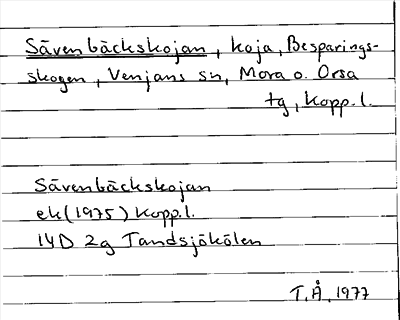 Sävenbäckskojan, koja, Besparings-
skogen, Venjans sn, Mora o. Orsa
tg, Kopp. l.
Sävenbäckskojan
ek (1975) Kopp. l.
14D 2g Tandsjökölen
T. Å. 1977